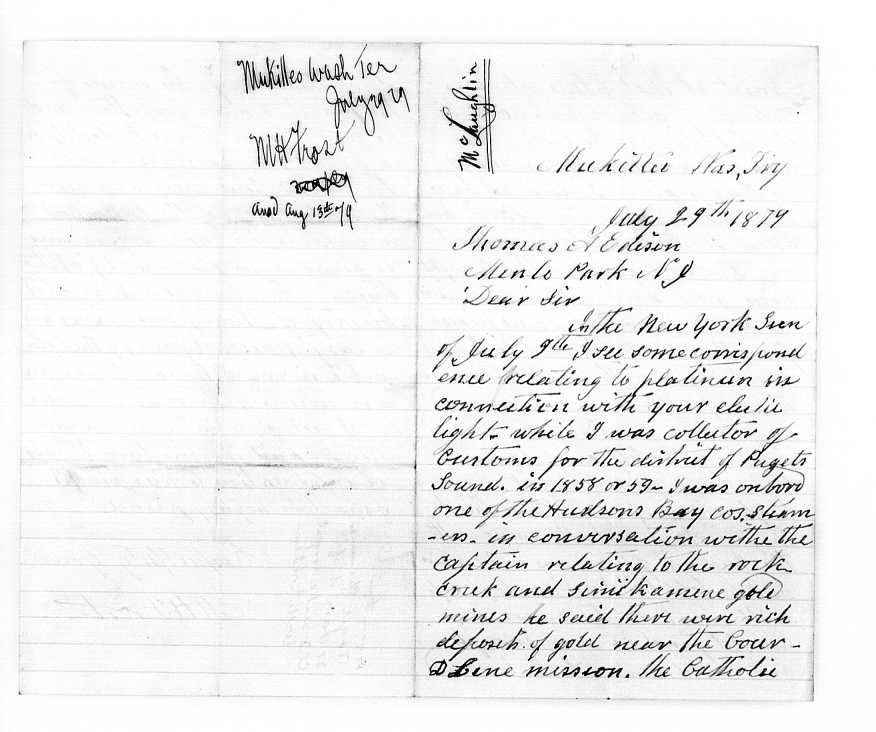 Mukilteo Wash Ter
July 29 79
M H Frost
Ansd Aug 13th 79
McLaughlin
Mukilteo Was, Try
July 29th 1879
Thomas A Edison
Menlo Park N J
Dear Sir
In the New York Sun
of July 9th I see some correspond
ence relating to platinum in
connection with your electric
light- while I was collector of
Customs for the district of Pugets
Sound. in 1858 or 59- I was on bord
one of the Hudsons Bay cos. steam
-ers- in conversation withe the
Captain relating to the rock
creek and Similkamene gold
mines he said there were rich
deposits of gold near the Cour-
D Lene mission. the Catholic